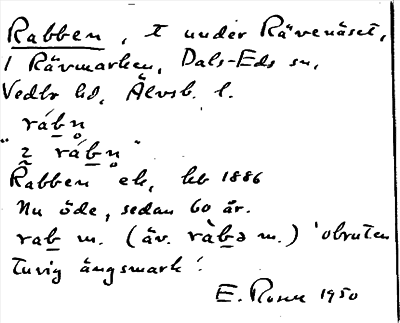 Rabben, t under Rävenäset,
1 Rävmarken, Dals-Eds sn,
Vedbo hd, Älvsb. l.
rábn̥
"2 rábn̥"
Rabben ek, hb 1886
Nu öde, sedan 60 år.
rab m. (äv. ràbə m.) 'obruten
tuvig ängsmark'.
E. Rosen 1950